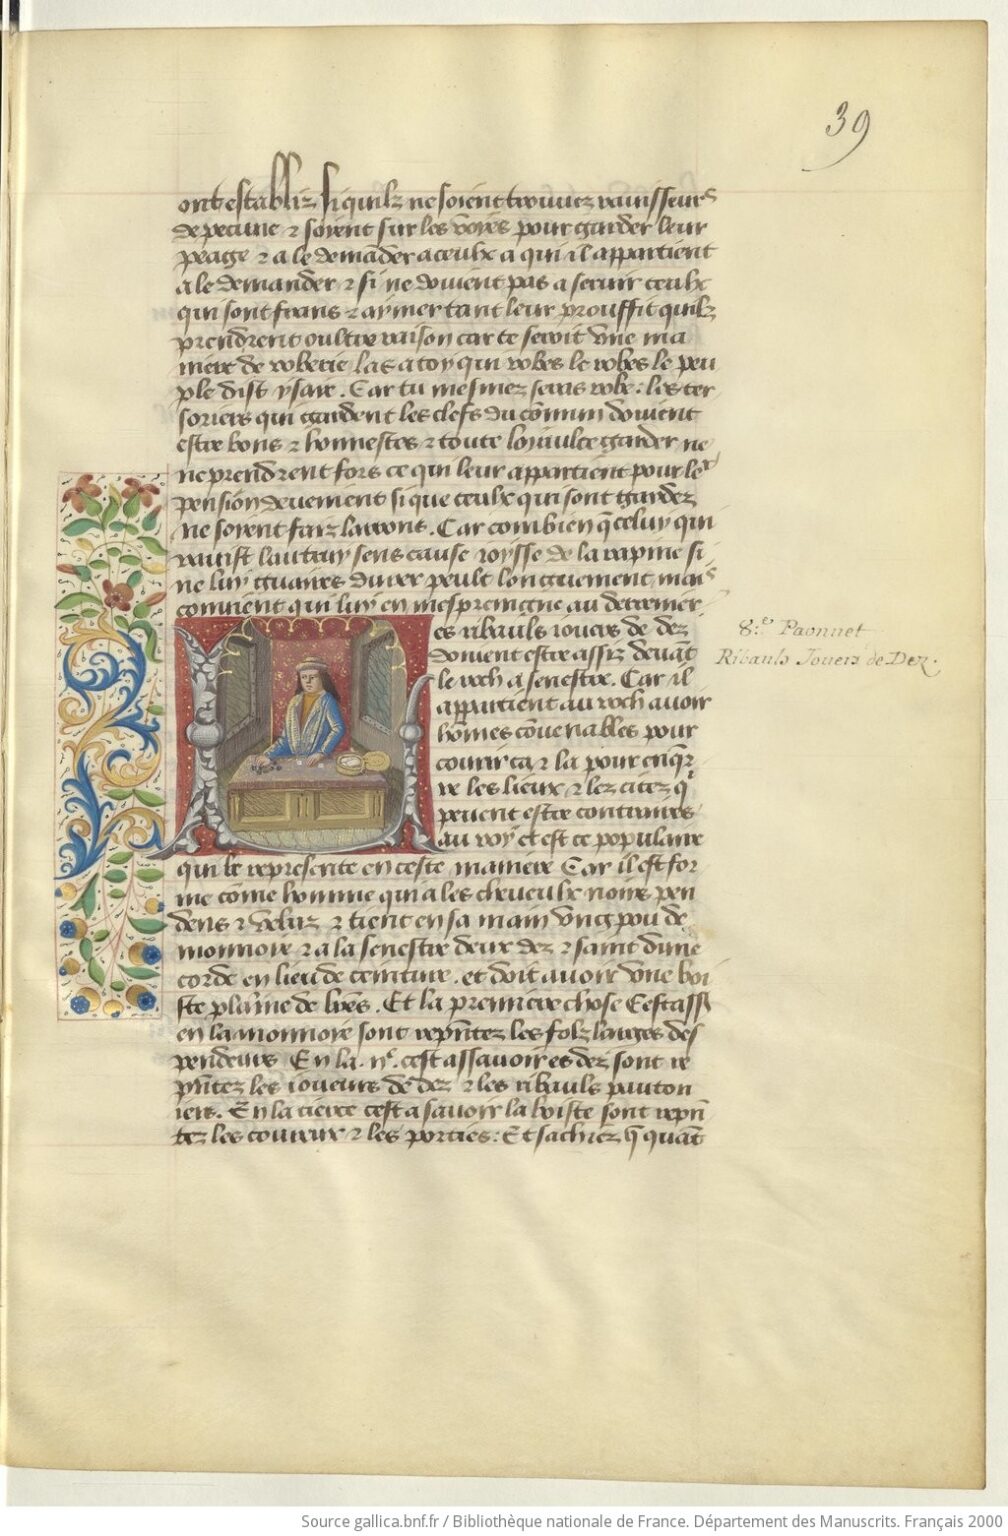 39
ont establiz si quilz ne soient trouvez ravisseurs
de pecune ⁊ soient sur les voyes pour garder leur
peage ⁊ a le demãder a ceulx a qui il appartient
a le demander ⁊ si ne doivent pas asservir ceulx
qui sont frans ⁊ aymer tant leur prouffit quilz
prendrent oultre raison car ce seroit vne ma
niere de roberie las a toy qui robes le robes le peu
ple dist ysaie. Car tu mesmez seras robe: les ter
soriers qui gardent les clefs du cõmun doivent
estre bons ⁊ honnestes ⁊ toute loyaulte garder ne
ne prendrent fors ce qui leur appartient pour le
pension devement si que ceulx qui sont gardez
ne soient faiz larrons. Car combien q̃ celuy qui
ravist lautruy sens cause ioysse de la rapine si
ne luy gvaires durer peult longuement mais
convient qui luy en mespreingne au derrenier
es ribauls ioueurs de dez
doivent estre assiz devãt
le roch a senestre. Car il
appartient au roch avoir
hõmes cõvenables pour
courir ca ⁊ la pour enq̃r
re les lieux ⁊ lez citez q̃
peuent estre contraires
au roy et est ce populaire
qui le represente en ceste maniere Car il est for
me cõme homme qui a les cheveulx noirs pen
dens ⁊ veluz ⁊ tient en sa main vng pou de
monnoie ⁊ a la senestre deux dez ⁊ saint dune
corde en lieu de ceinture. et doit avoir vne boi
ste plaine de lr̃es. Et la premiere chose Cestass̃
en la monnoye sont rep̃ntez les folz larges des
pendeurs En la .iie. cest assavoir es dez sont re
p̃ntez les ioueurs de dez ⁊ les ribauls pauton
iers. En la tierce cest a savoir la boiste sont rep̃n
tez les coureux ⁊ les porties: Et sachiez q̃ quãt
8.e Paonnet
Ribauls Joueis de Dez.
Source gallica.bnf.fr / Bibliothèque nationale de France. Département des Manuscrits. Français 2000